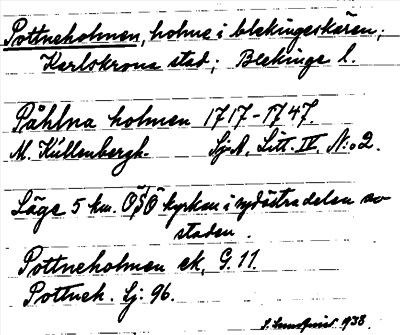 Pottneholmen, holme i blekingeskären;
Karlskrona stad; Blekinge l.
Påhlna holmen 1717-1747.
M. Küllenbergh. Sj.A. Litt. IV. N:o 2.
Läge 5 km. ÖSÖ kyrkan i sydöstra delen av
staden.
Pottneholmen ek. G. 11.
Pottnek. Sj. 96.
S. 1938.